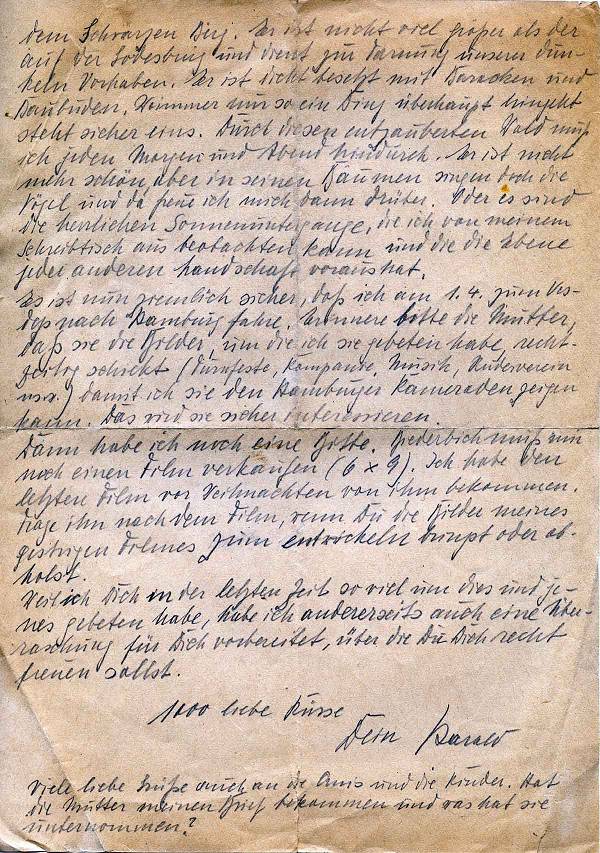 dem Schwarzen Berg. Er ist nicht viel größer als der
auf der Lodesburg und dient zur Tarnung unserer dun-
keln Vorhaben. Er ist dicht besetzt mit Baracken und
Baubuden. Wo immer nur so ein Ding überhaupt hingeht
steht sicher eins. Durch diesen entzauberten Wald muß
ich jeden Morgen und Abend hindurch. Er ist nicht
mehr schön, aber in seinen Bäumen singen doch die
Vögel und da freue ich mich dann drüber. Oder es sind
die herrlichen Sonnenuntergänge, die ich von meinem
Schreibtisch aus beobachten kann und die die Ebene
jeder anderen Landschaft voraus hat.
Es ist nun ziemlich sicher, daß ich am 1.4. zum
nach Hamburg fahre. Erinnere bitte die Mutter,
daß sie die Bilder, um die ich sie gebeten habe, recht-
zeitig schickt (Turmfeste, Kompanie, Musik, Ruderverein
usw.) damit ich sie den Hamburger Kameraden zeigen
kann. Das wird sie sicher interessieren.
Dann habe ich noch eine Bitte. Biederbick muß mir
noch einen Film verkaufen (6 x 9). Ich habe den
letzten Film vor Weihnachten von ihm bekommen.
Frage ihn nach dem Film, wenn Du die Bilder meines
gestrigen Filmes zum entwickeln bringst oder ab-
holst.
Weil ich Dich in der letzten Zeit so viel um dies und je-
nes gebeten habe, habe ich andererseits auch eine Über-
raschung für Dich vorbereitet, über die Du Dich recht
freuen sollst.
1000 liebe Küsse
Dein Harald
Viele liebe Grüße auch an die Omis und die Kinder. Hat
die Mutter meinen Brief bekommen und was hat sie
unternommen?